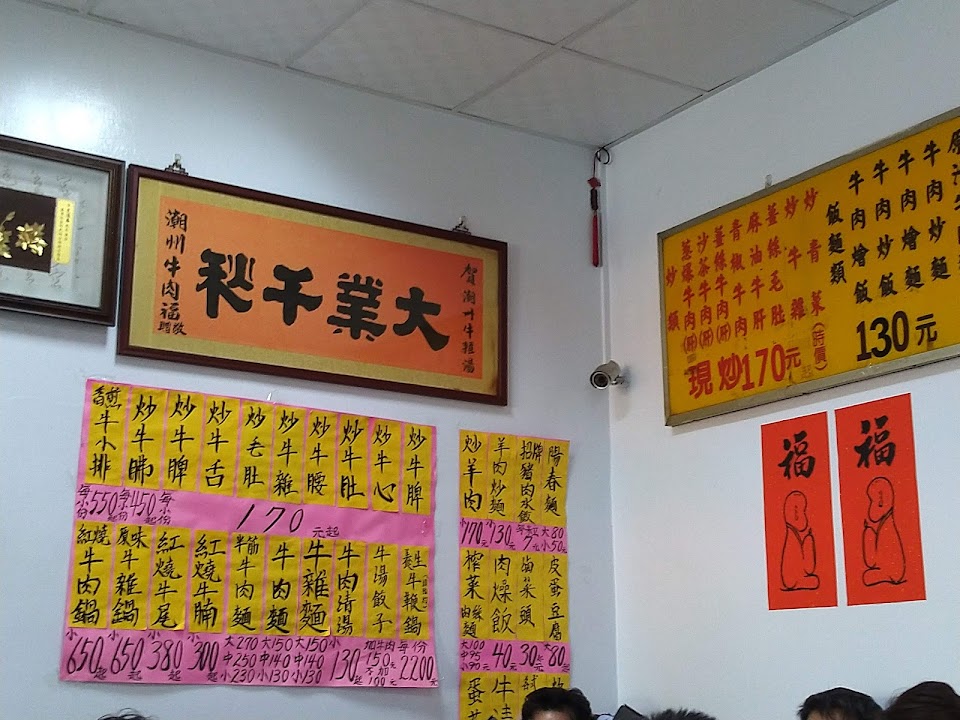 賀潮州牛雜湯
大業千秋
潮州牛肉福
敬贈
炒牛脾
炒牛心
炒牛肚
炒牛腰
炒牛雜
炒毛肚
炒牛舌
炒牛脾
炒牛腩
香煎牛小排
170元起
每小份450起
每小份550起
養生牛鞭鍋
牛湯餃子
牛肉清湯
牛雜麵
牛肉麵
半筋牛肉麵
紅燒牛腩
紅燒牛尾
原味牛雜鍋
紅燒牛肉鍋
每份2200元
150元
不加100元
小130起
大150中140小130
大150中140小130
大270中250小230
小300起
小380起
小650起
小650起
陽春麵
招牌豬肉水餃
羊肉炒麵
炒羊肉
大80小50元
7元
小130元
小170元
皮蛋豆腐
滷菜頭
肉燥飯
榨菜肉絲麵
大80元
30元
40元
大100中95小90元
牛肉炒麵
牛肉燴麵
牛肉炒飯
牛肉燴飯
飯麵類
130元
炒青菜(時價)
炒牛雜
薑絲毛肚
麻油牛肝
青椒牛肉
薑絲牛肉(肝)
沙茶牛肉(肝)
蔥爆牛肉(肝)
炒類
現炒170元起
福
福